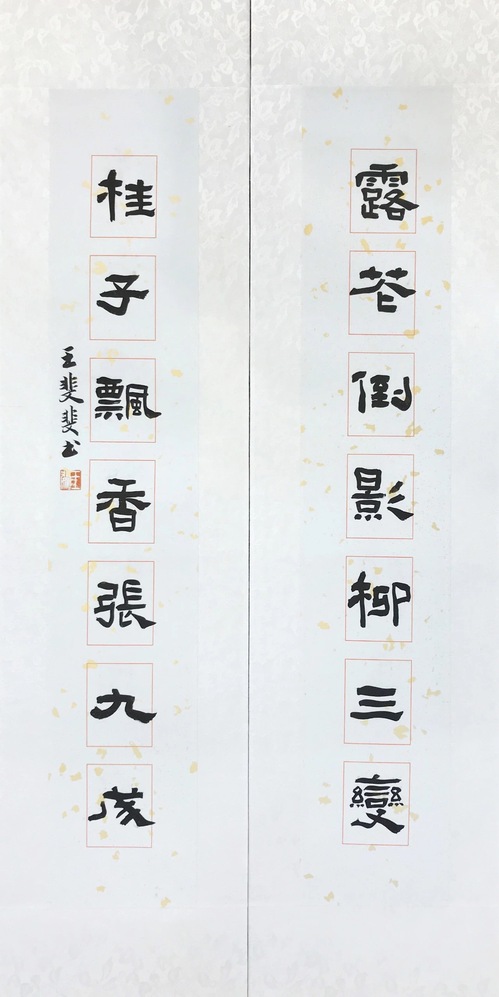 露花倒影柳三變
桂子飄香張九成
王斐斐书